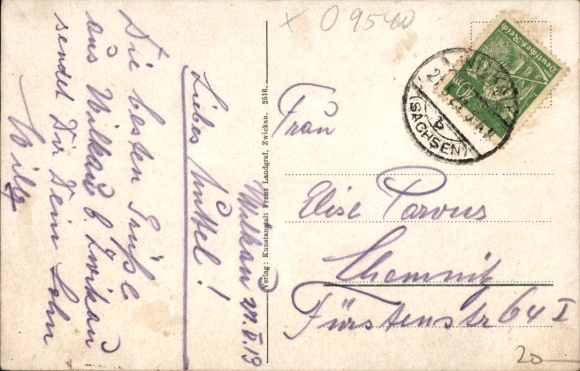 Wilkau 21.V.19
Liebes Muttel!
Die besten Grüße
aus Wilkau b Zwickau
sendet Dir Dein Sohn
Willy
Verlag: Kunstanstalt Franz Landgraf, Zwickau. 2516.
X 09540
Deutsches Reich
40
(SACHSEN)
b
Frau
Elise Parvus
Chemnitz
Fürstenstr 64 I
20